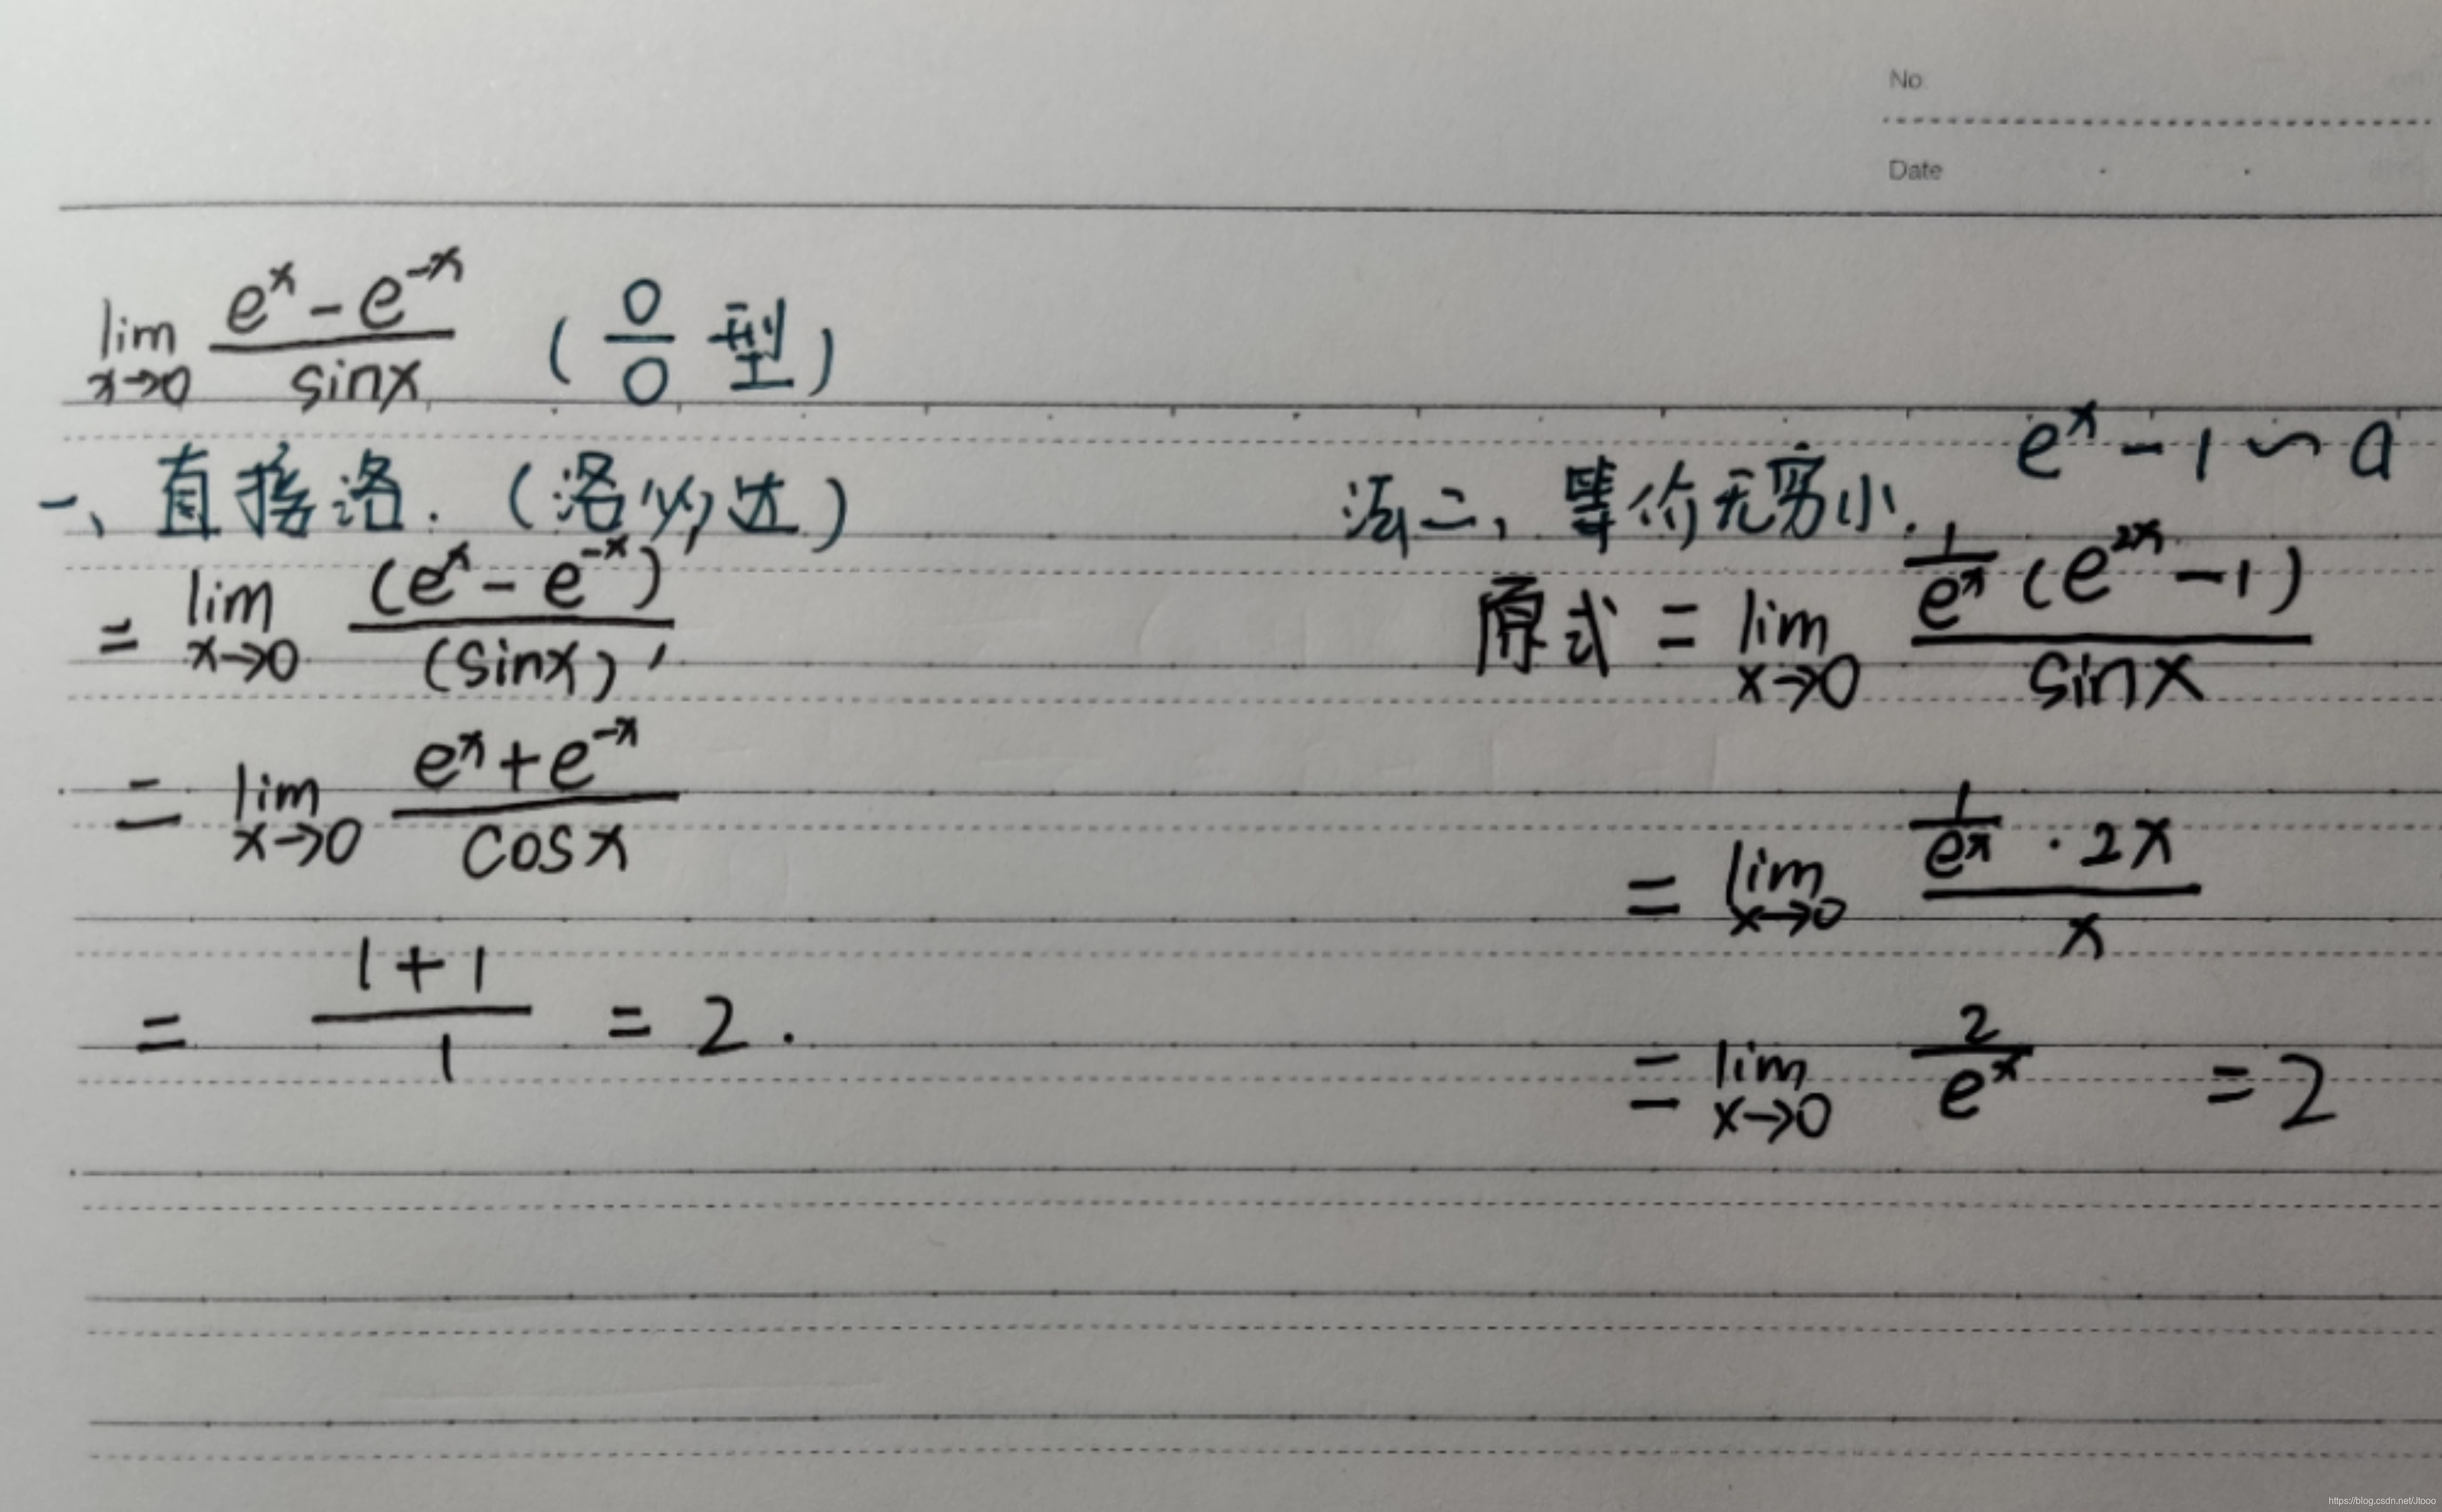 No.
Date
lim x→0 (e^x - e^-x)/(sinx) ( 0/0 型 )
一、直接洛.(洛必达)
= lim x→0 (e^x - e^-x)'/(sinx)'
= lim x→0 (e^x + e^-x)/(cosx)
= (1+1)/1 = 2.
e^x - 1 ~ a
法二、等价无穷小.
原式 = lim x→0 (1/e^x (e^2x - 1))/(sinx)
= lim x→0 (1/e^x · 2x)/x
= lim x→0 2/e^x = 2
https://blog.csdn.net/Jtooo